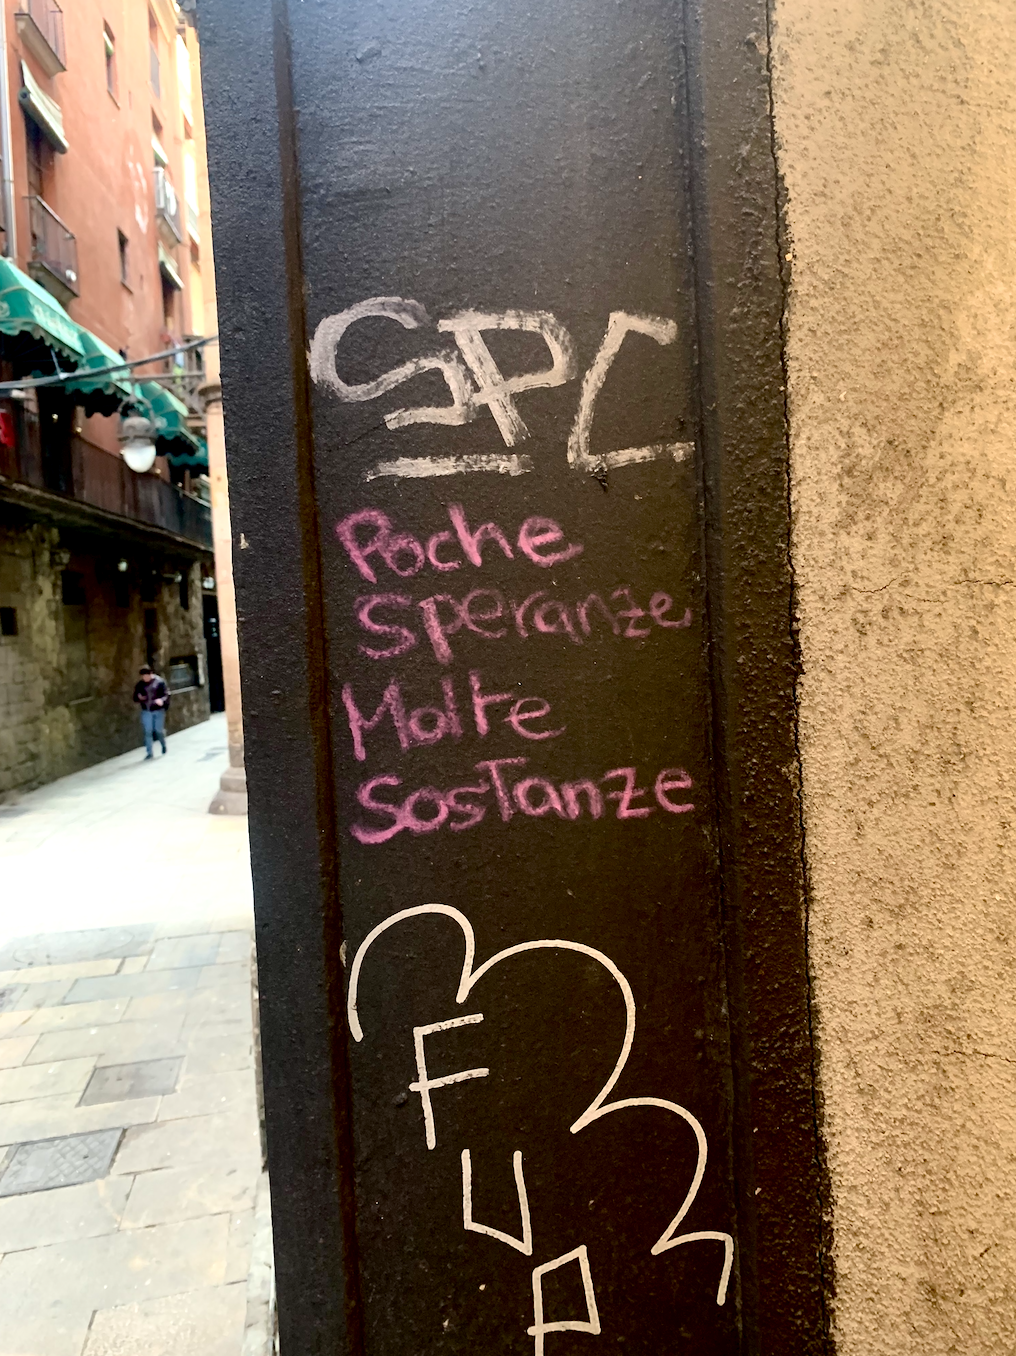 SPC
Poche
Speranze
Molte
Sostanze
F
U
P